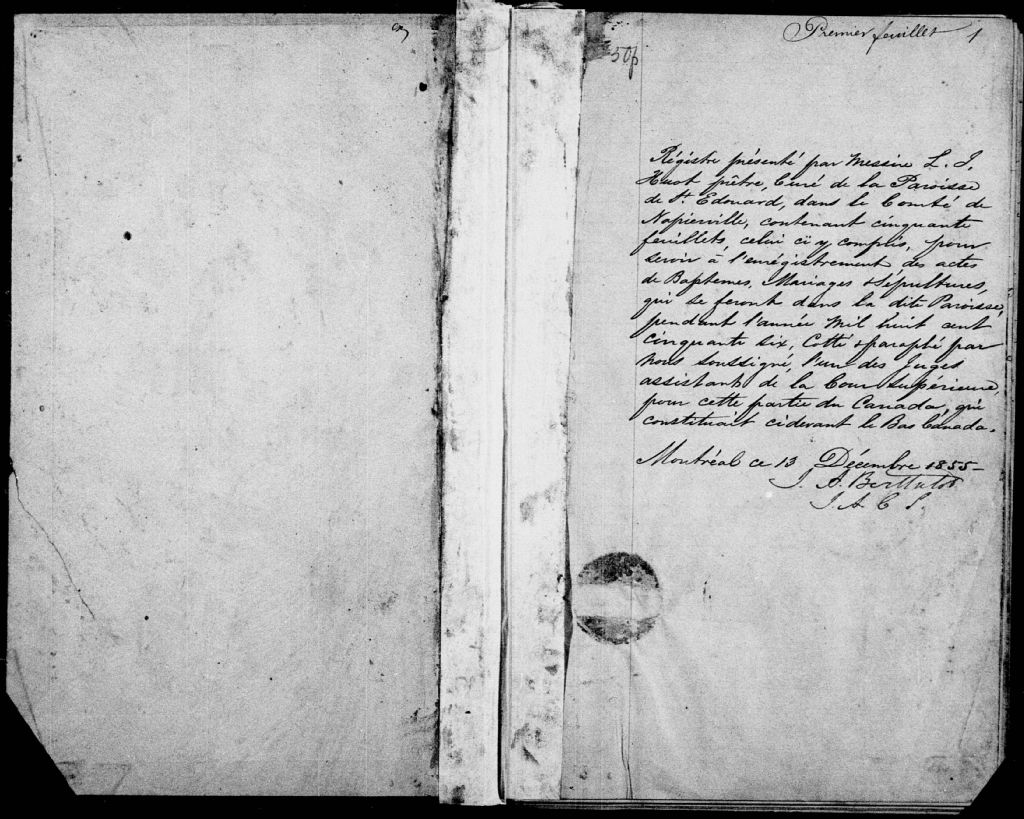 Premier feuillet 1
50f
Régistre présenté par Messire L. I.
Huot prêtre, Curé de la Paroisse
de St. Edouard, dans le Comté de
Napierville, contenant cinquante
feuillets, celui ci y compris, pour
servir à l'enrégistrement des actes
de Baptemes, Mariages & Sépultures,
qui se feront dans la dite Paroisse,
pendant l'année Mil huit cent
cinquante six, Cotté & paraphé par
nous soussigné, l'un des Juges
assistant de la Cour Supérieure,
pour cette partie du Canada, qui
constituait cidevant le Bas Canada.
Montréal ce 13 Décembre 1855
J. A. Berthelot
J. A. C. S.